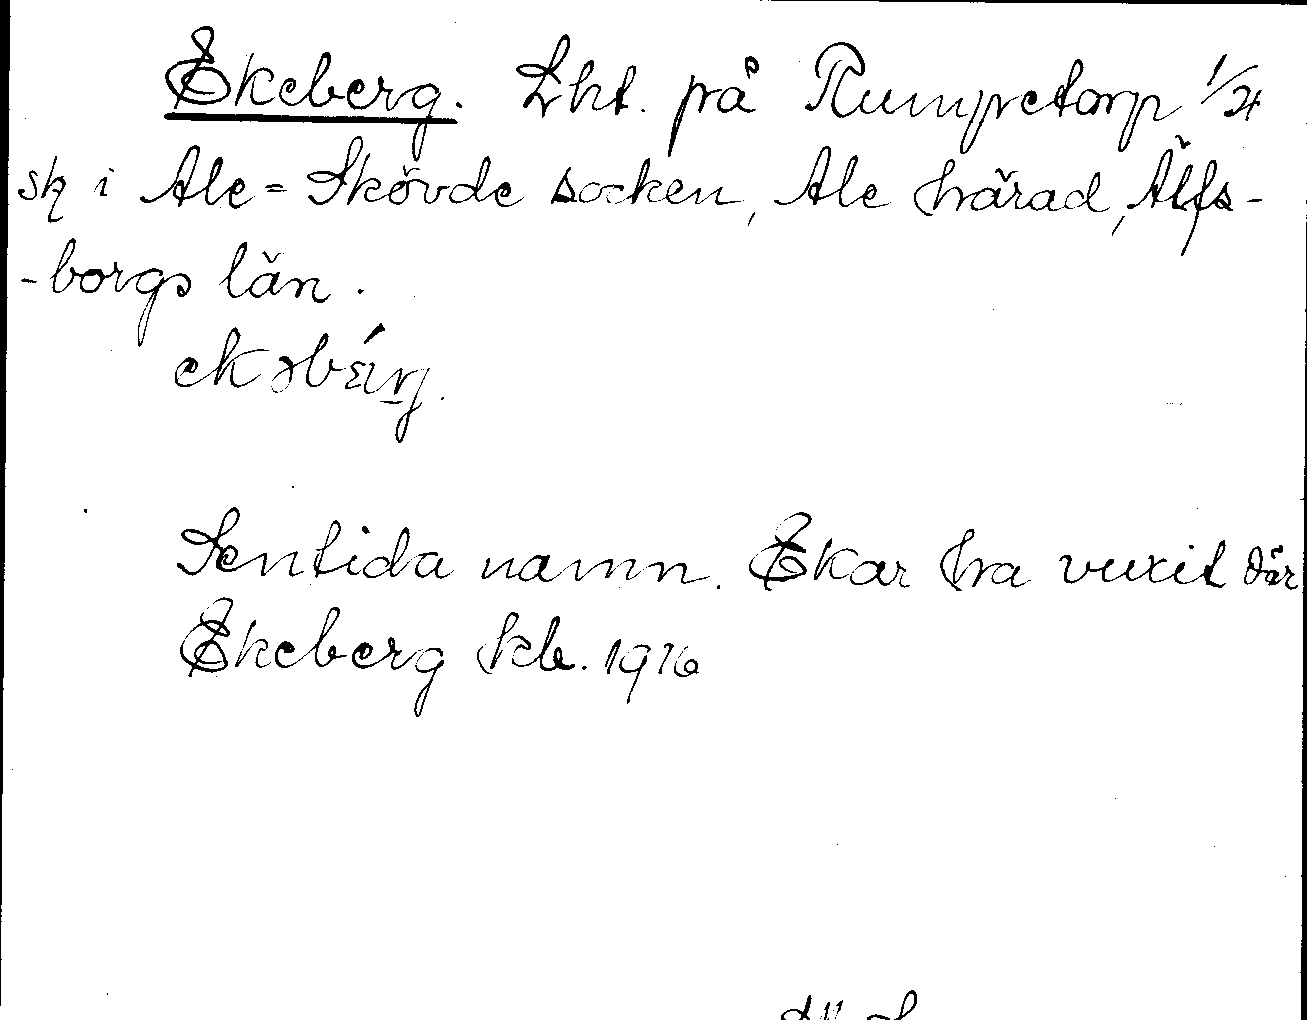 Ekeberg. Lht. på Rumpetorp 1/4
sk i Ale-Skövde socken, Ale härad, Älfs-
-borgs län.
Sentida namn. Ekar ha vuxit där
Ekeberg kb. 1916